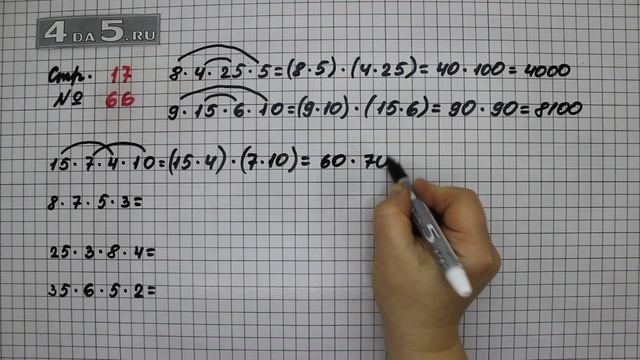 4 DA 5.RU
Стр. 17
№ 66
8 · 4 · 25 · 5 = (8 · 5) · (4 · 25) = 40 · 100 = 4000
9 · 15 · 6 · 10 = (9 · 10) · (15 · 6) = 90 · 90 = 8100
15 · 7 · 4 · 10 = (15 · 4) · (7 · 10) = 60 · 70
8 · 7 · 5 · 3 =
25 · 3 · 8 · 4 =
35 · 6 · 5 · 2 =